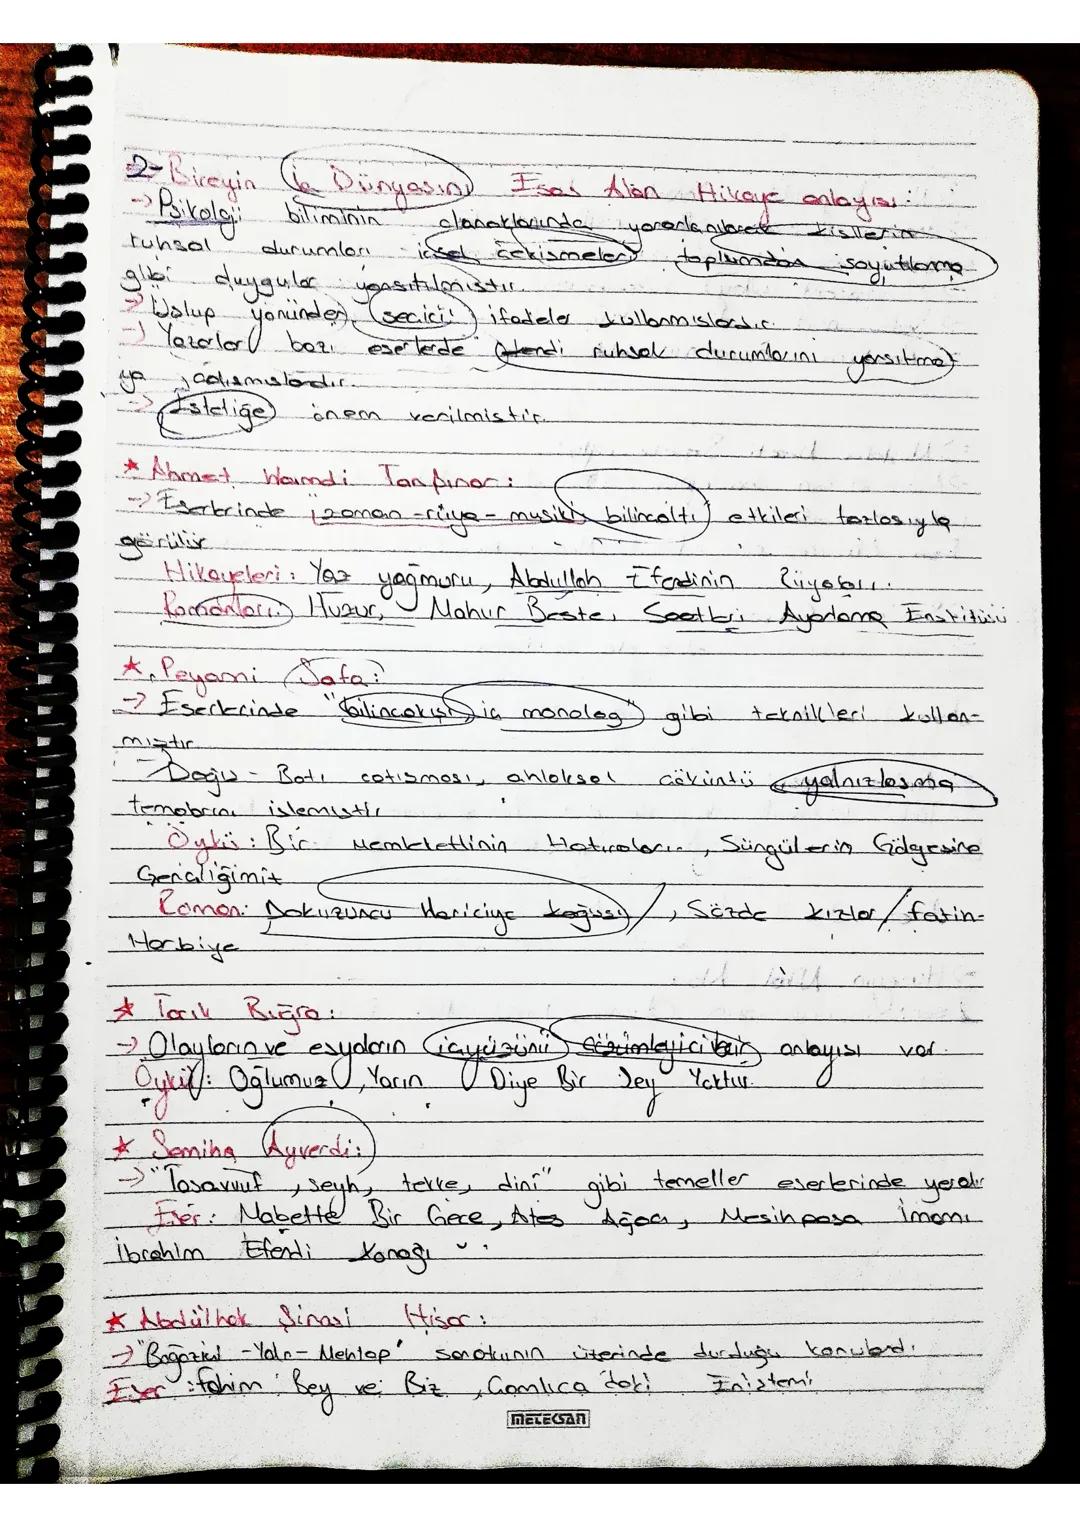 2- Bireyin İç Dünyasını Esas Alan Hikaye anlayışı:
-> Psikoloji biliminin olanaklarında yararlanılarak kişilerin
ruhsal durumları içsel çekişmeler toplumdan soyutlama
gibi duygular yansıtılmıştır.
-> Üslup yönünden seçici ifadeler kullanmışlardır.
-> Yazarlar bazı eserlerde kendi ruhsal durumlarını yansıtma
ya çalışmışlardır.
-> Estetiğe önem verilmiştir.
* Ahmet Hamdi Tanpınar:
-> Eserlerinde zaman - rüya - musiki bilinçaltı etkileri fazlasıyla
görülür
Hikayeleri: Yaz yağmuru, Abdullah Efendinin Rüyaları.
Romanları: Huzur, Mahur Beste, Saatleri Ayarlama Enstitüsü
* Peyami Safa:
-> Eserlerinde "bilinçakışı iç monolog" gibi teknikleri kullan-
mıştır
Doğu - Batı çatışması, ahlaksal çöküntü yalnızlaşma
temalarını işlemiştir
Öykü: Bir Memleketlinin Hatıraları, Süngülerin Gölgesine
Gençliğimiz
Roman: Dokuzuncu Hariciye koğuşu / , Sözde kızlar / fatih-
Harbiye
* Tarık Buğra:
-> Olayların ve eşyaların içyüzünü çözümleyici bir anlayışı var.
Öykü: Oğlumuz, Yarın Diye Bir Şey Yoktur.
* Samiha Ayverdi:
-> "Tasavvuf, şeyh, tekke, dini" gibi temeller eserlerinde yer alır
Eser: Mabette Bir Gece, Ateş Ağacı, Mesihpaşa imamı
İbrahim Efendi Konağı
* Abdülhak Şinasi Hisar:
-> "Boğaziçi - Yalı - Mehtap" sanatının üzerinde durduğu konulardı.
Eser: fahim Bey ve Biz, Çamlıca'daki Eniştemiz
METEKSAN